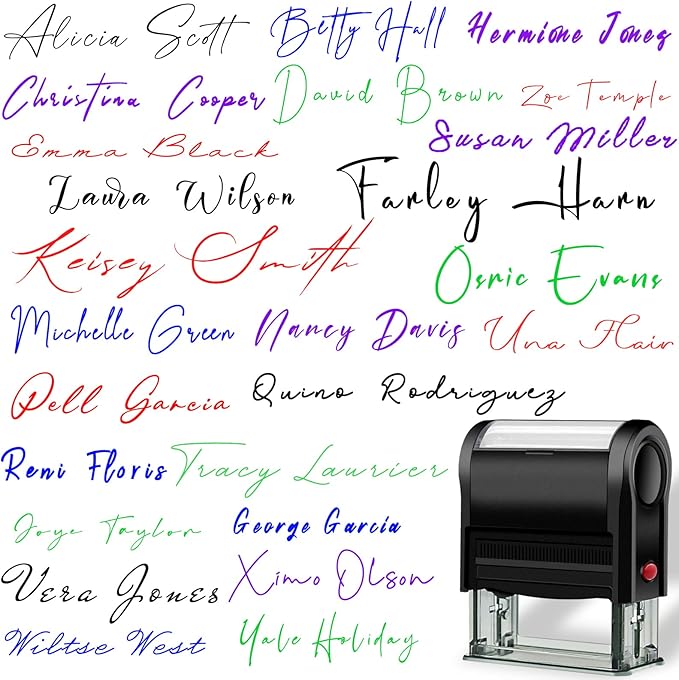 Alicia Scott Betty Hall Hermione Jones
Christina Cooper David Brown Zoe Temple
Emma Black Susan Miller
Laura Wilson Farley Harn
Keisey Smith Osric Evans
Michelle Green Nancy Davis Una Flair
Pell Garcia Quino Rodriguez
Reni Floris Tracy Laurier
Joye Taylor George Garcia
Vera Jones Ximo Olson
Wiltse West Yale Holiday